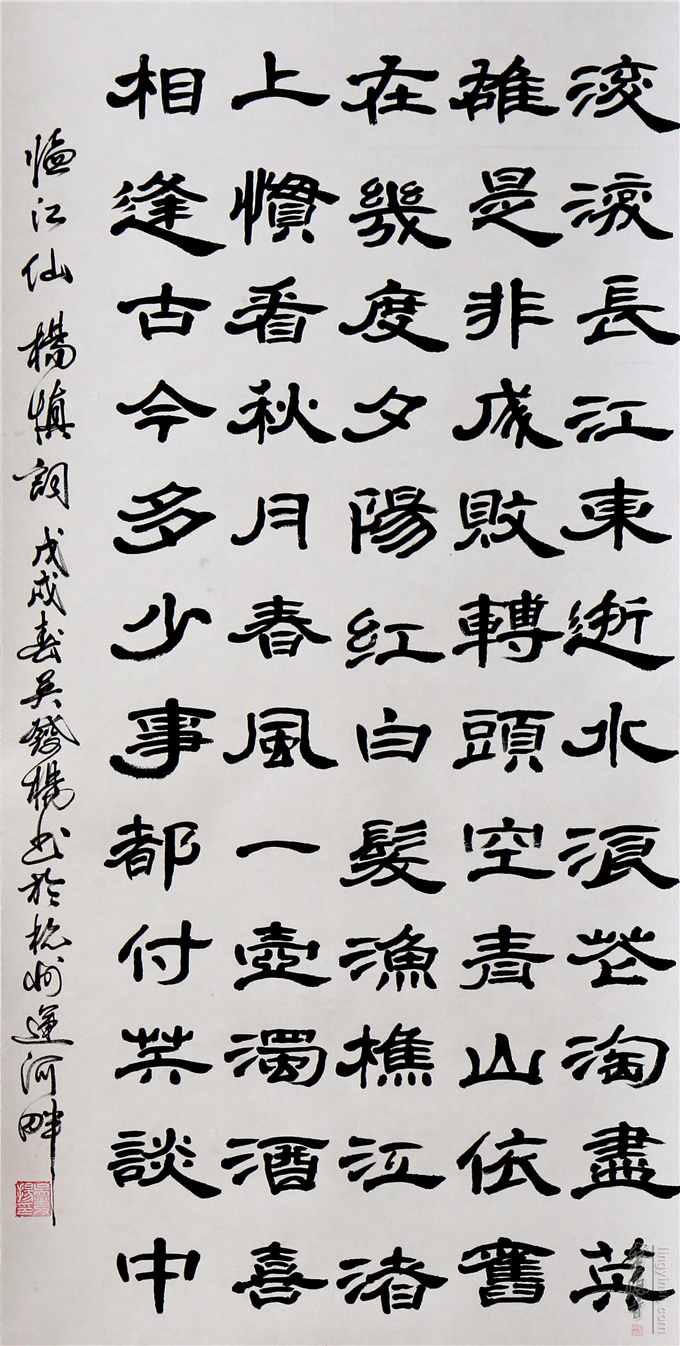 滾滾長江東逝水浪花淘盡英
雄是非成敗轉頭空青山依舊
在幾度夕陽紅白髮漁樵江渚
上慣看秋月春風一壺濁酒喜
相逢古今多少事都付笑談中
臨江仙 楊慎詞 戊戌春吳發楊書於杭州運河畔